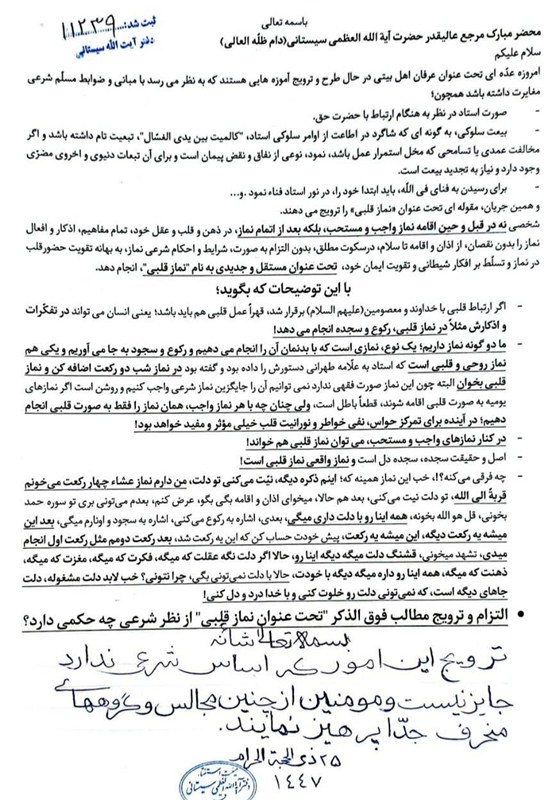 باسمه تعالی
ثبت شد: ۱۱۲۳۹
دفتر آیت الله سیستانی
محضر مبارک مرجع عالیقدر حضرت آیة الله العظمی سیستانی(دام ظلّه العالی)
سلام علیکم
امروزه عدّه ای تحت عنوان عرفان اهل بیتی در حال طرح و ترویج آموزه هایی هستند که به نظر می رسد با مبانی و ضوابط مسلّم شرعی
مغایرت داشته باشد همچون؛
- صورت استاد در نظر به هنگام ارتباط با حضرت حق.
- بیعت سلوکی، به گونه ای که شاگرد در اطاعت از اوامر سلوکی استاد، "کالمیت بین یدی الغسّال"، تبعیت تام داشته باشد و اگر
مخالفت عمدی یا تسامحی که مخل استمرار عمل باشد، نمود، نوعی از نفاق و نقض پیمان است و برای آن تبعات دنیوی و اخروی مضرّی
وجود دارد و نیاز به تجدید بیعت است.
- برای رسیدن به فنای فی اللّه، باید ابتدا خود را، در نور استاد فناء نمود .و...
و همین جریان، مقوله ای تحت عنوان «نماز قلبی» را ترویج می دهند.
شخصی نه در قبل و حین اقامه نماز واجب و مستحب، بلکه بعد از اتمام نماز، در ذهن و قلب و عقل خود، تمام مفاهیم، اذکار و افعال
نماز را بدون نقصان، از اذان و اقامه تا سلام، درسکوت مطلق، بدون التزام به صورت، شرایط و احکام شرعی نماز، به بهانه تقویت حضورقلب
در نماز و تسلّط بر افکار شیطانی و تقویت ایمان خود، تحت عنوان مستقل و جدیدی به نام "نماز قلبی"، انجام دهد.
با این توضیحات که بگوید؛
- اگر ارتباط قلبی با خداوند و معصومین(علیهم السلام) برقرار شد، قهراً عمل قلبی هم باید باشد؛ یعنی انسان می تواند در تفکّرات
و اذکارش مثلاً در نماز قلبی، رکوع و سجده انجام می دهد!
- ما دو گونه نماز داریم؛ یک نوع، نمازی است که با بدنمان آن را انجام می دهیم و رکوع و سجود به جا می آوریم و یکی هم
نماز روحی و قلبی است که استاد به علّامه طهرانی دستورش را داده بود و گفته بود در نماز شب دو رکعت اضافه کن و نماز
قلبی بخوان البته چون این نماز صورت فقهی ندارد نمی توانیم آن را جایگزین نماز شرعی واجب کنیم و روشن است اگر نمازهای
یومیه به صورت قلبی اقامه شوند، قطعاً باطل است، ولی چنان چه با هر نماز واجب، همان نماز را فقط به صورت قلبی انجام
دهیم؛ در آینده برای تمرکز حواس به نفی خواطر و نورانیت قلب خیلی مؤثر و مفید خواهد بود!
- در کنار نمازهای واجب و مستحب، می توان نماز قلبی هم خواند!
- اصل و حقیقت سجده، سجده دل است و نماز واقعی نماز قلبی است!
- چه فرقی می‌کنه؟!، خب این نماز همینه که؛ اینم ذکره دیگه، نیّت می‌کنی تو دلت، من دارم نماز عشاء چهار رکعت می‌خونم
قربةً الی الله، تو دلت نیت می‌کنی، بعد هم حالا، میخوای اذان و اقامه بگی بگو، عرض کنم، بعدم می‌تونی بری تو سوره حمد
بخونی، قل هو الله بخونه، همه اینا رو با دلت داری میگی، بعدی، اشاره به رکوع می‌کنی، اشاره به سجود و اونارم میگی، بعد این
میشه یه رکعت دیگه، این میشه یه رکعت، پیش خودت حساب کن که این یه رکعت شد، بعد رکعت دومم مثل رکعت اول انجام
میدی، تشهد میخونی، قشنگ دلت میگه دیگه اینا رو، حالا اگر دلت نگه عقلت که میگه، فکرت که میگه، مغزت که میگه،
ذهنت که میگه، همه اینا رو داره میگه دیگه با خودت، حالا با دلت نمی‌تونی بگی، چرا نتونی؟ خب لابد دلت مشغوله، دلت
جاهای دیگه است، که نمی‌تونی دلت رو خلوت کنی و با خدا درد و دل کنی!
• التزام و ترویج مطالب فوق الذکر "تحت عنوان نماز قلبی" از نظر شرعی چه حکمی دارد؟
بسمه تعالی شأنه
ترویج این امور که اساس شرعی ندارد
جایز نیست و مومنین از چنین مجالس و گروههای
منحرف جدّا پرهیز نمایند.
۲۵ ذی الحجة الحرام
۱۴۴۷